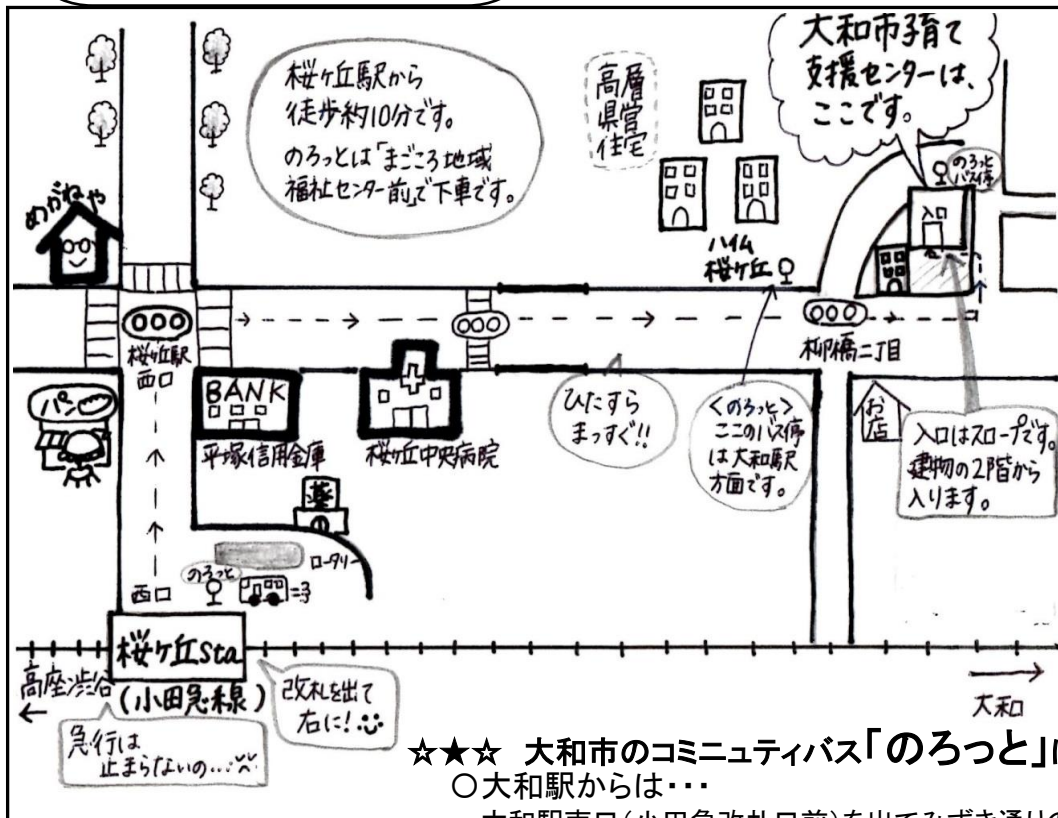 桜ヶ丘駅から
徒歩約10分です。
のろっとは「まごころ地域
福祉センター前」で下車です。
高層
県営
住宅
大和市子育て
支援センターは、
ここです。
のろっと
バス停
入口
めがねや
ハイム
桜ヶ丘
桜ヶ丘駅
西口
柳橋二丁目
パン
BANK
平塚信用金庫
桜ヶ丘中央病院
ひたすら
まっすぐ!!
<のろっと>
ここのバス停
は大和駅
方面です。
お店
入口はスロープです。
建物の2階から
入ります。
薬
ロータリー
のろっと
西口
桜ヶ丘Sta
(小田急線)
高座渋谷
←
改札を出て
右に!
急行は
止まらないの...
→
大和
☆★☆ 大和市のコミニュティバス「のろっと」
○大和駅からは・・・
大和駅東口(小田急改札口前)を出てみずき通りの